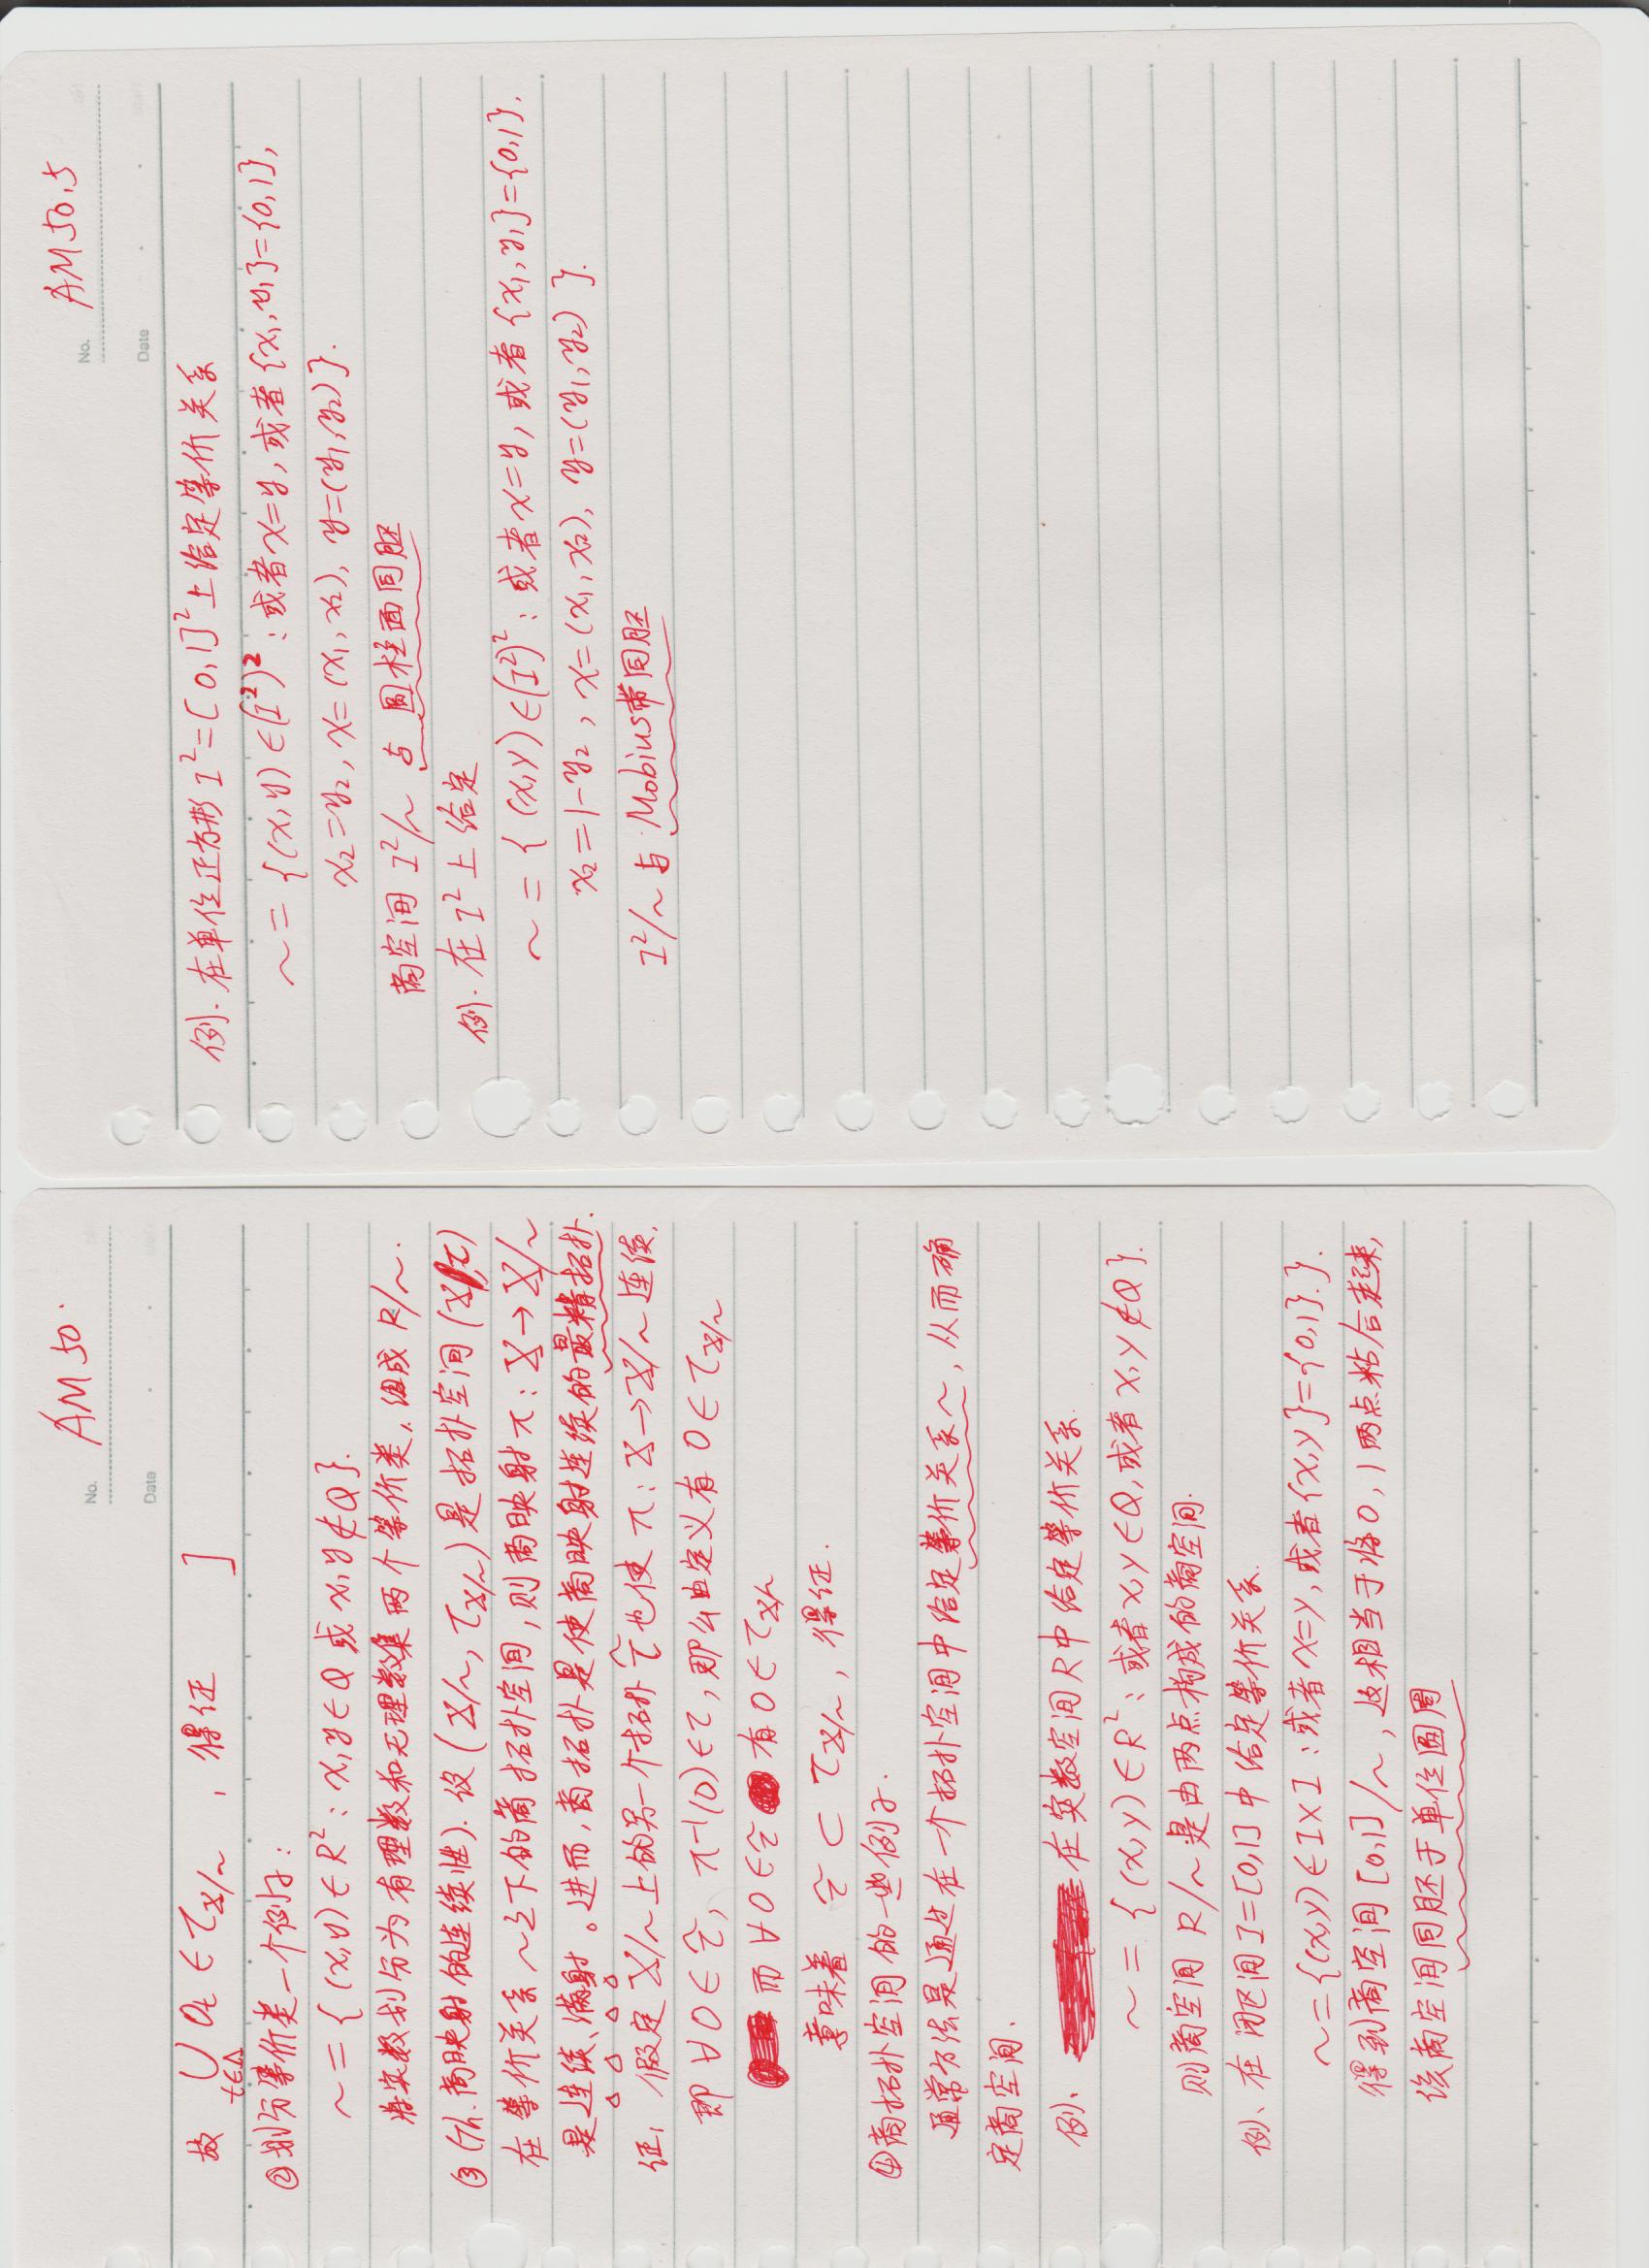 No. AM 50.
Date
故 ∪ O_t ∈ τ_{X/~} , 得证 ]
t∈Δ
②划分等价类一个例子:
~ = { (x,y) ∈ R² : x,y ∈ Q 或 x,y ∉ Q }.
将实数划分为有理数和无理数集两个等价类, 组成 R/~.
③ (Th. 商映射的连续性). 设 (X/~, τ_{X/~}) 是拓扑空间 (X, τ)
在等价关系 ~ 之下的商拓扑空间, 则商映射 π: X → X/~
是连续、满射。进而, 商拓扑是使商映射连续的最精拓扑.
证, 假定 X/~ 上的另一个拓扑 τ̃ 也使 π: X → X/~ 连续,
即 ∀O ∈ τ̃, π⁻¹(O) ∈ τ, 那么由定义有 O ∈ τ_{X/~}
而 ∀O ∈ τ̃ 有 O ∈ τ_{X/~}
意味着 τ̃ ⊂ τ_{X/~}, 得证.
④商拓扑空间的一些例子.
通常方法是通过在一个拓扑空间中给定等价关系~, 从而确
定商空间.
例、 在实数空间R中给定等价关系.
~ = { (x,y) ∈ R² : 或者 x,y ∈ Q, 或者 x,y ∉ Q }.
则商空间 R/~ 是由两点构成的商空间.
例、在闭区间 I=[0,1] 中给定等价关系.
~ = {(x,y) ∈ I×I : 或者 x=y, 或者 {x,y}={0,1}.}.
得到商空间 [0,1]/~, 这相当于将0,1两点粘合起来,
该商空间同胚于单位圆周
No. AM 50.5
Date
例. 在单位正方形 I²=[0,1]² 上给定等价关系
~ = {(x,y) ∈ (I²)² : 或者 x=y, 或者 {x₁,y₁}={0,1},
x₂=y₂, x=(x₁,x₂), y=(y₁,y₂)}.
商空间 I²/~ 与圆柱面同胚
例. 在 I² 上给定
~ = { (x,y) ∈ (I²)² : 或者 x=y, 或者 {x₁,y₁}={0,1}.
x₂=1-y₂, x=(x₁,x₂), y=(y₁,y₂) }.
I²/~ 与 Mobius带同胚